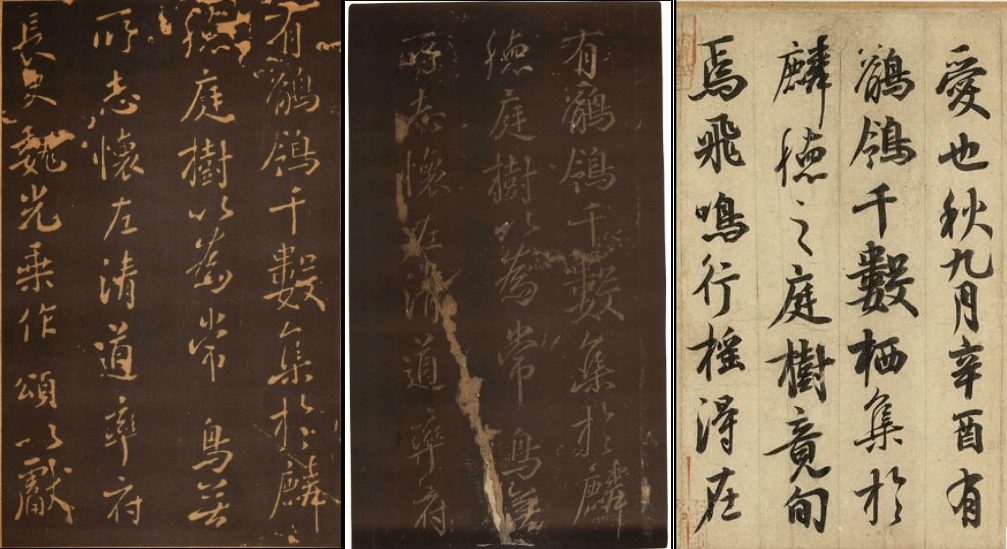 有鶺鴒千數集於麟
德庭樹以為常鳥無
所志懷左清道率府
長史魏光乘作頌以獻
有鶺鴒千數集於麟
德庭樹以為常鳥無
所志懷左清道率府
愛也秋九月辛酉有
鶺鴒千數栖集於
麟德之庭樹竟旬
焉飛鳴行搖得在